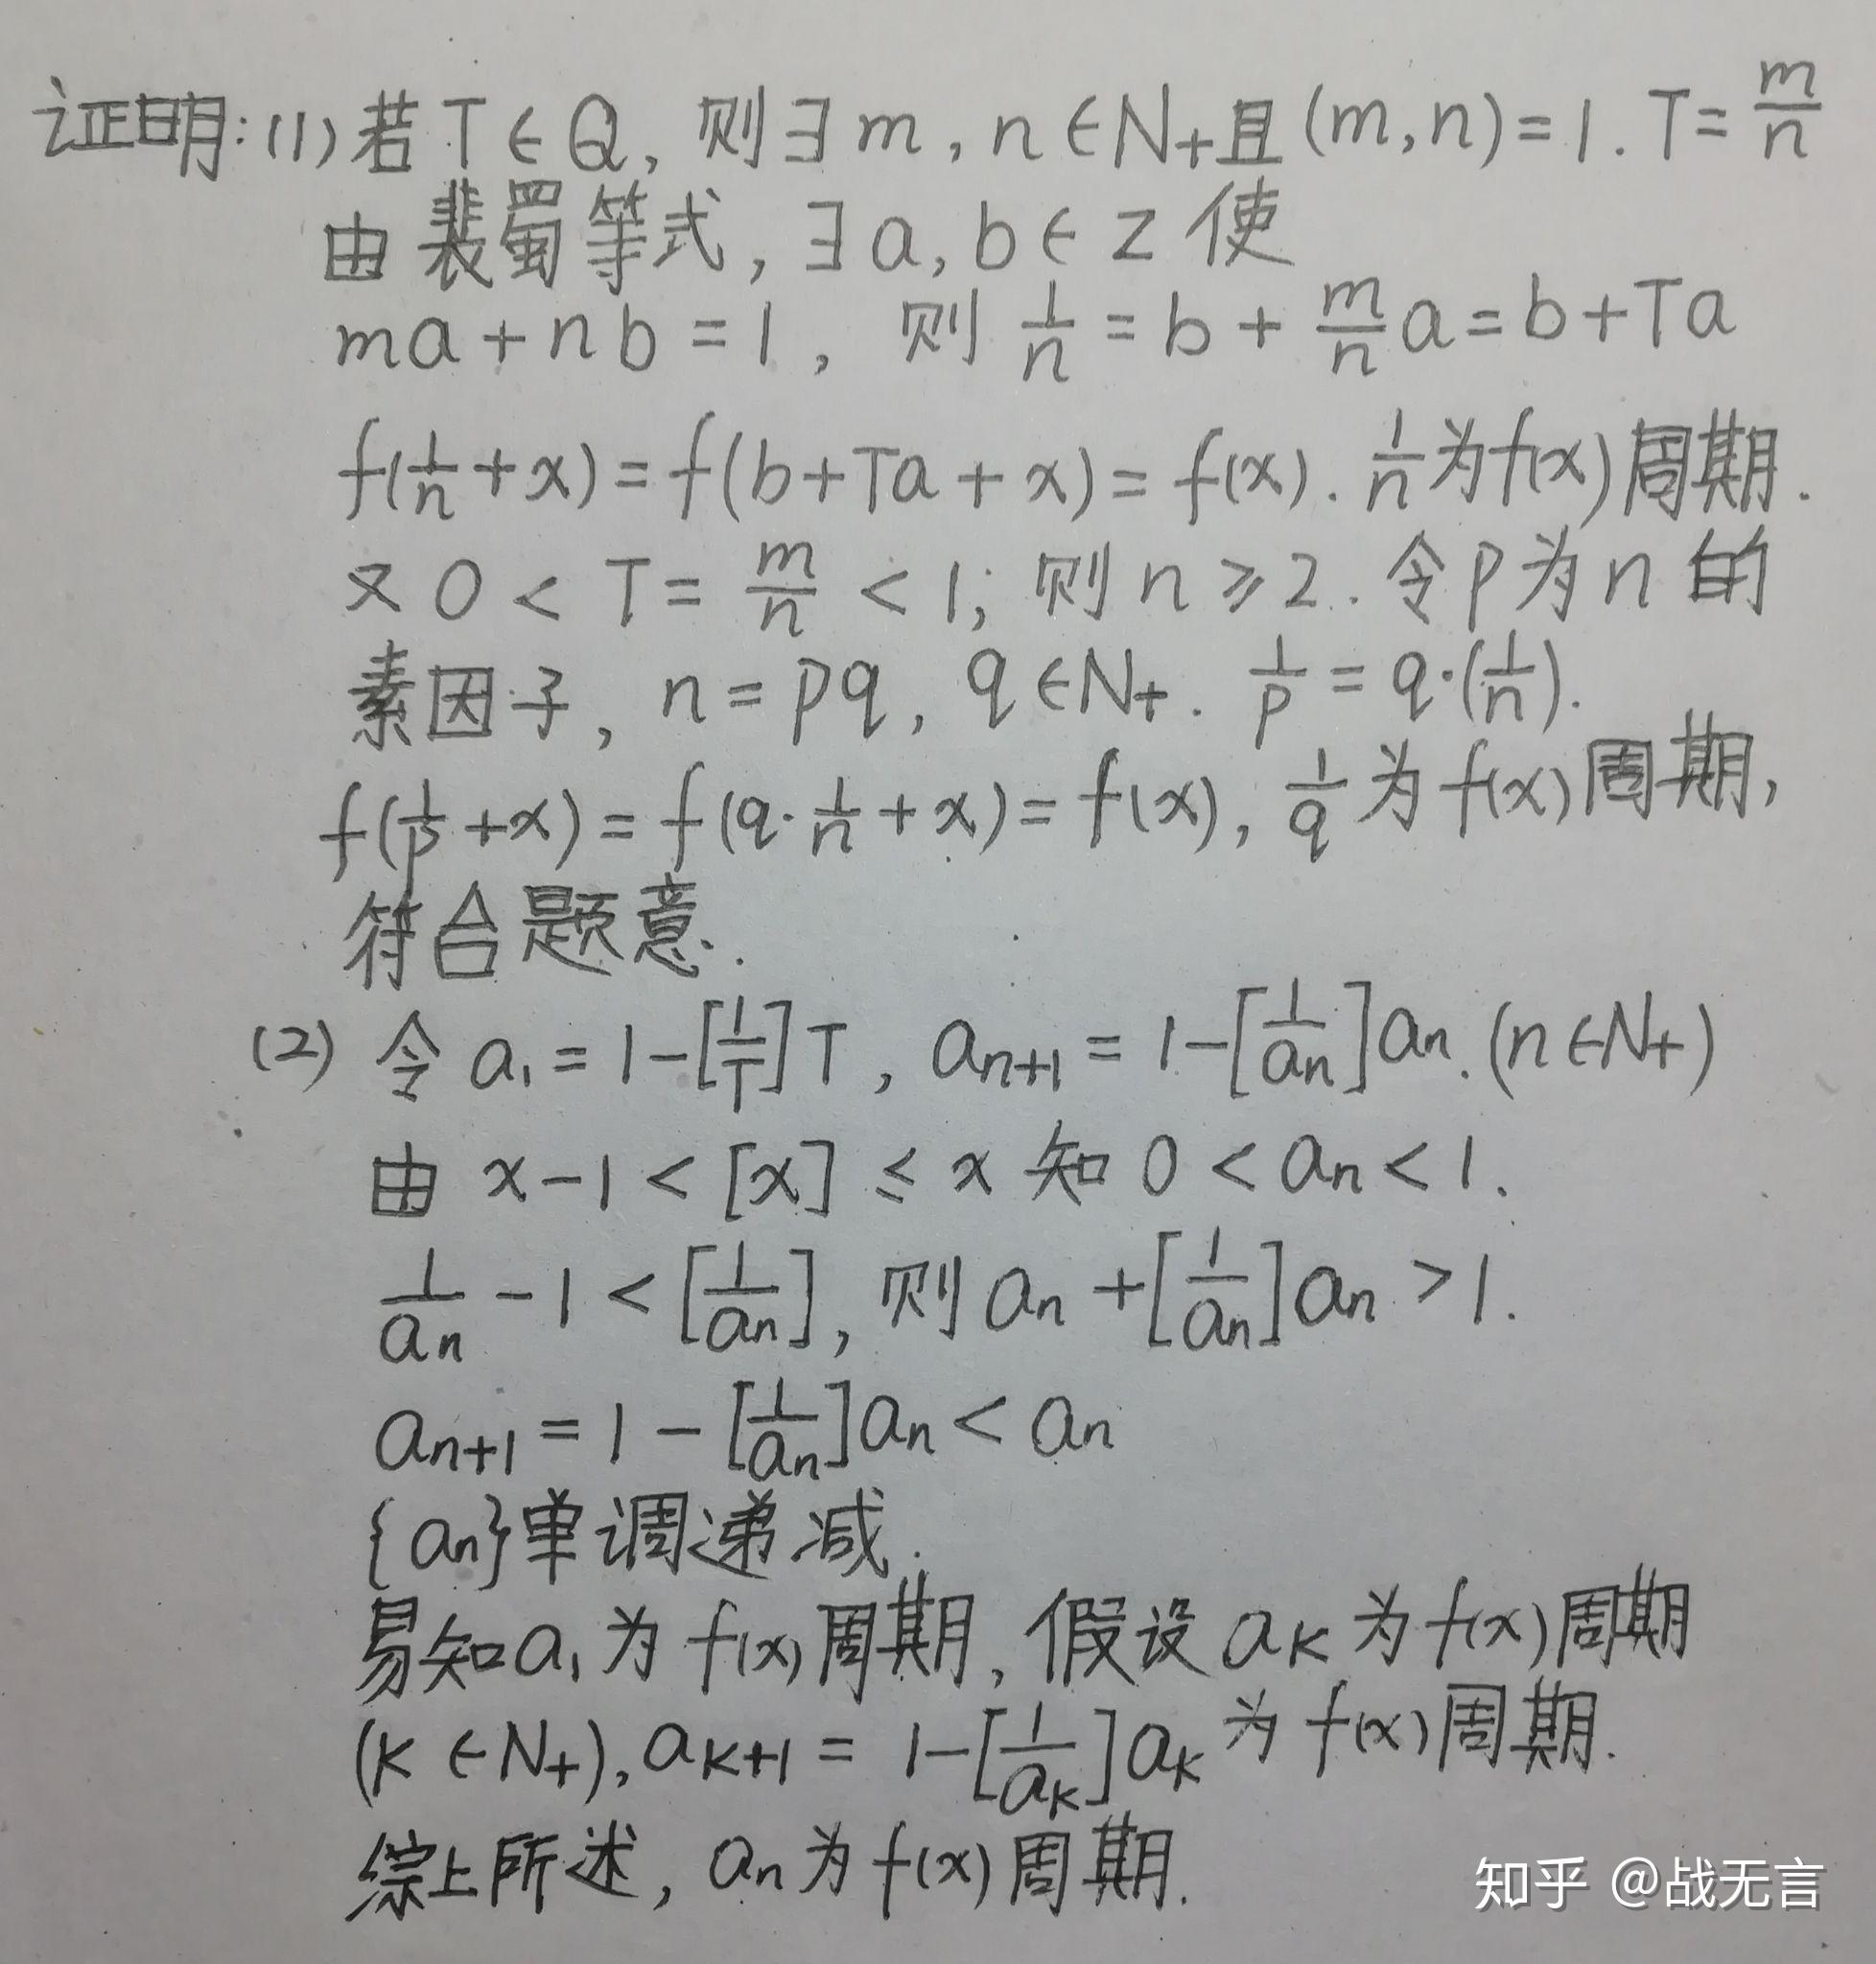 证明:(1)若T∈Q, 则∃m,n∈N₊且(m,n)=1. T=m/n
由裴蜀等式,∃a,b∈Z使
ma+nb=1, 则1/n=b+m/n a=b+Ta
f(1/n+x)=f(b+Ta+x)=f(x). 1/n为f(x)周期.
又0<T=m/n<1; 则n≥2. 令p为n的
素因子, n=pq, q∈N₊. 1/p=q·(1/n).
f(1/p+x)=f(q·1/n+x)=f(x), 1/q为f(x)周期,
符合题意.
(2) 令a₁=1-[1/T]T, aₙ₊₁=1-[1/aₙ]aₙ.(n∈N₊)
由 x-1<[x]≤x 知 0<aₙ<1.
1/aₙ-1<[1/aₙ], 则aₙ+[1/aₙ]aₙ>1.
aₙ₊₁=1-[1/aₙ]aₙ<aₙ
{aₙ}单调递减.
易知a₁为f(x)周期, 假设aₖ为f(x)周期
(k∈N₊), aₖ₊₁=1-[1/aₖ]aₖ为f(x)周期.
综上所述, aₙ为f(x)周期.
知乎 @战无言